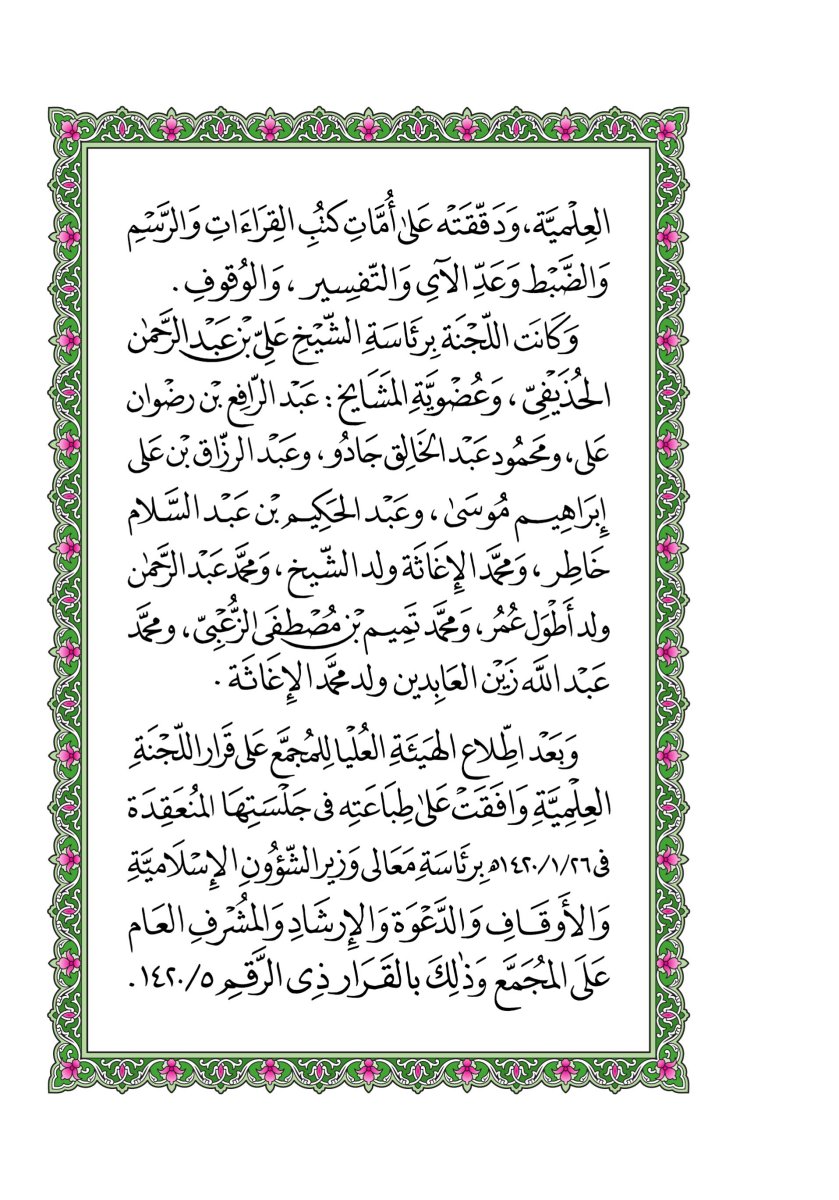 العِلْميَّة، وَدَقّقَتْه عَلىٰ أُمَّاتِ كتُبِ القِرَاءَاتِ وَالرَّسْمِ
وَالضَّبْط وَعَدِّ الآىِ وَالتّفسِير ، وَالوُقوفِ .
وَكَانَت اللّجْنَة بِرئَاسَةِ الشّيْخِ عَلِيّ بْن عَبْد الرَّحمٰن
الحُذَيفِيّ ، وَعُضْويَّةِ المَشَايخ : عَبْد الرّافِع بْن رضْوان
عَلى، ومَحمُود عَبْد الخَالِق جَادُو ، وعَبْد الرزّاق بْن عَلى
إبرَاهِيم مُوسَىٰ ، وعَبْد الحَكِيم بْن عَبْد السَّلام
خَاطِر ، وَمحمَّد الإغَاثَة ولد الشّيخ ، وَمحمَّد عَبْد الرَّحمٰن
ولد أَطْوَل عُمُر ، وَمحمَّد تَمِيم بْن مُصْطفَى الزُّعْبِيّ ، ومحمَّد
عَبْد اللَّه زَيْن العَابِدين ولد محمَّد الإغَاثَة .
وَبَعْد اطِّلاع الهَيئَةِ العُليَا لِلمُجمَّع عَلى قَرَار اللّجْنَةِ
العِلْمِيَّةِ وَافَقَتْ عَلىٰ طِبَاعَتِه فى جَلْسَتِهَا المُنعَقِدَة
فى ١٤٢٠/١/٢٦ه بِرئَاسَةِ مَعَالى وَزير الشّؤُونِ الإسْلَاميَّةِ
وَالأَوقَافِ وَالدَّعْوَة وَالإرشَادِ وَالمُشْرفِ العَام
عَلَى المُجَمَّع وَذٰلِكَ بالقَرَار ذِى الرَّقمِ ١٤٢٠/٥ .